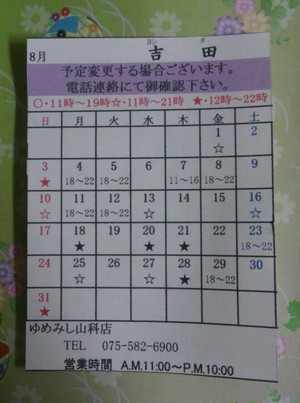 ヨシ ダ
8月 吉田
予定変更する場合ございます。
電話連絡にて御確認下さい。
○・11時〜19時☆・11時〜21時 ★・12時〜22時
日 月 火 水 木 金 土
1 2
☆
3 4 5 6 7 8 9
★ 18〜22 18〜22 11〜16 18〜22
10 11 12 13 14 15 16
☆ 18〜22 18〜22 ☆ ☆
17 18 19 20 21 22 23
★ ★ ★ 18〜22
24 25 26 27 28 29 30
☆ ☆ ★ 18〜22
31
★
ゆめみし山科店
TEL 075-582-6900
営業時間 A.M.11:00〜P.M.10:00